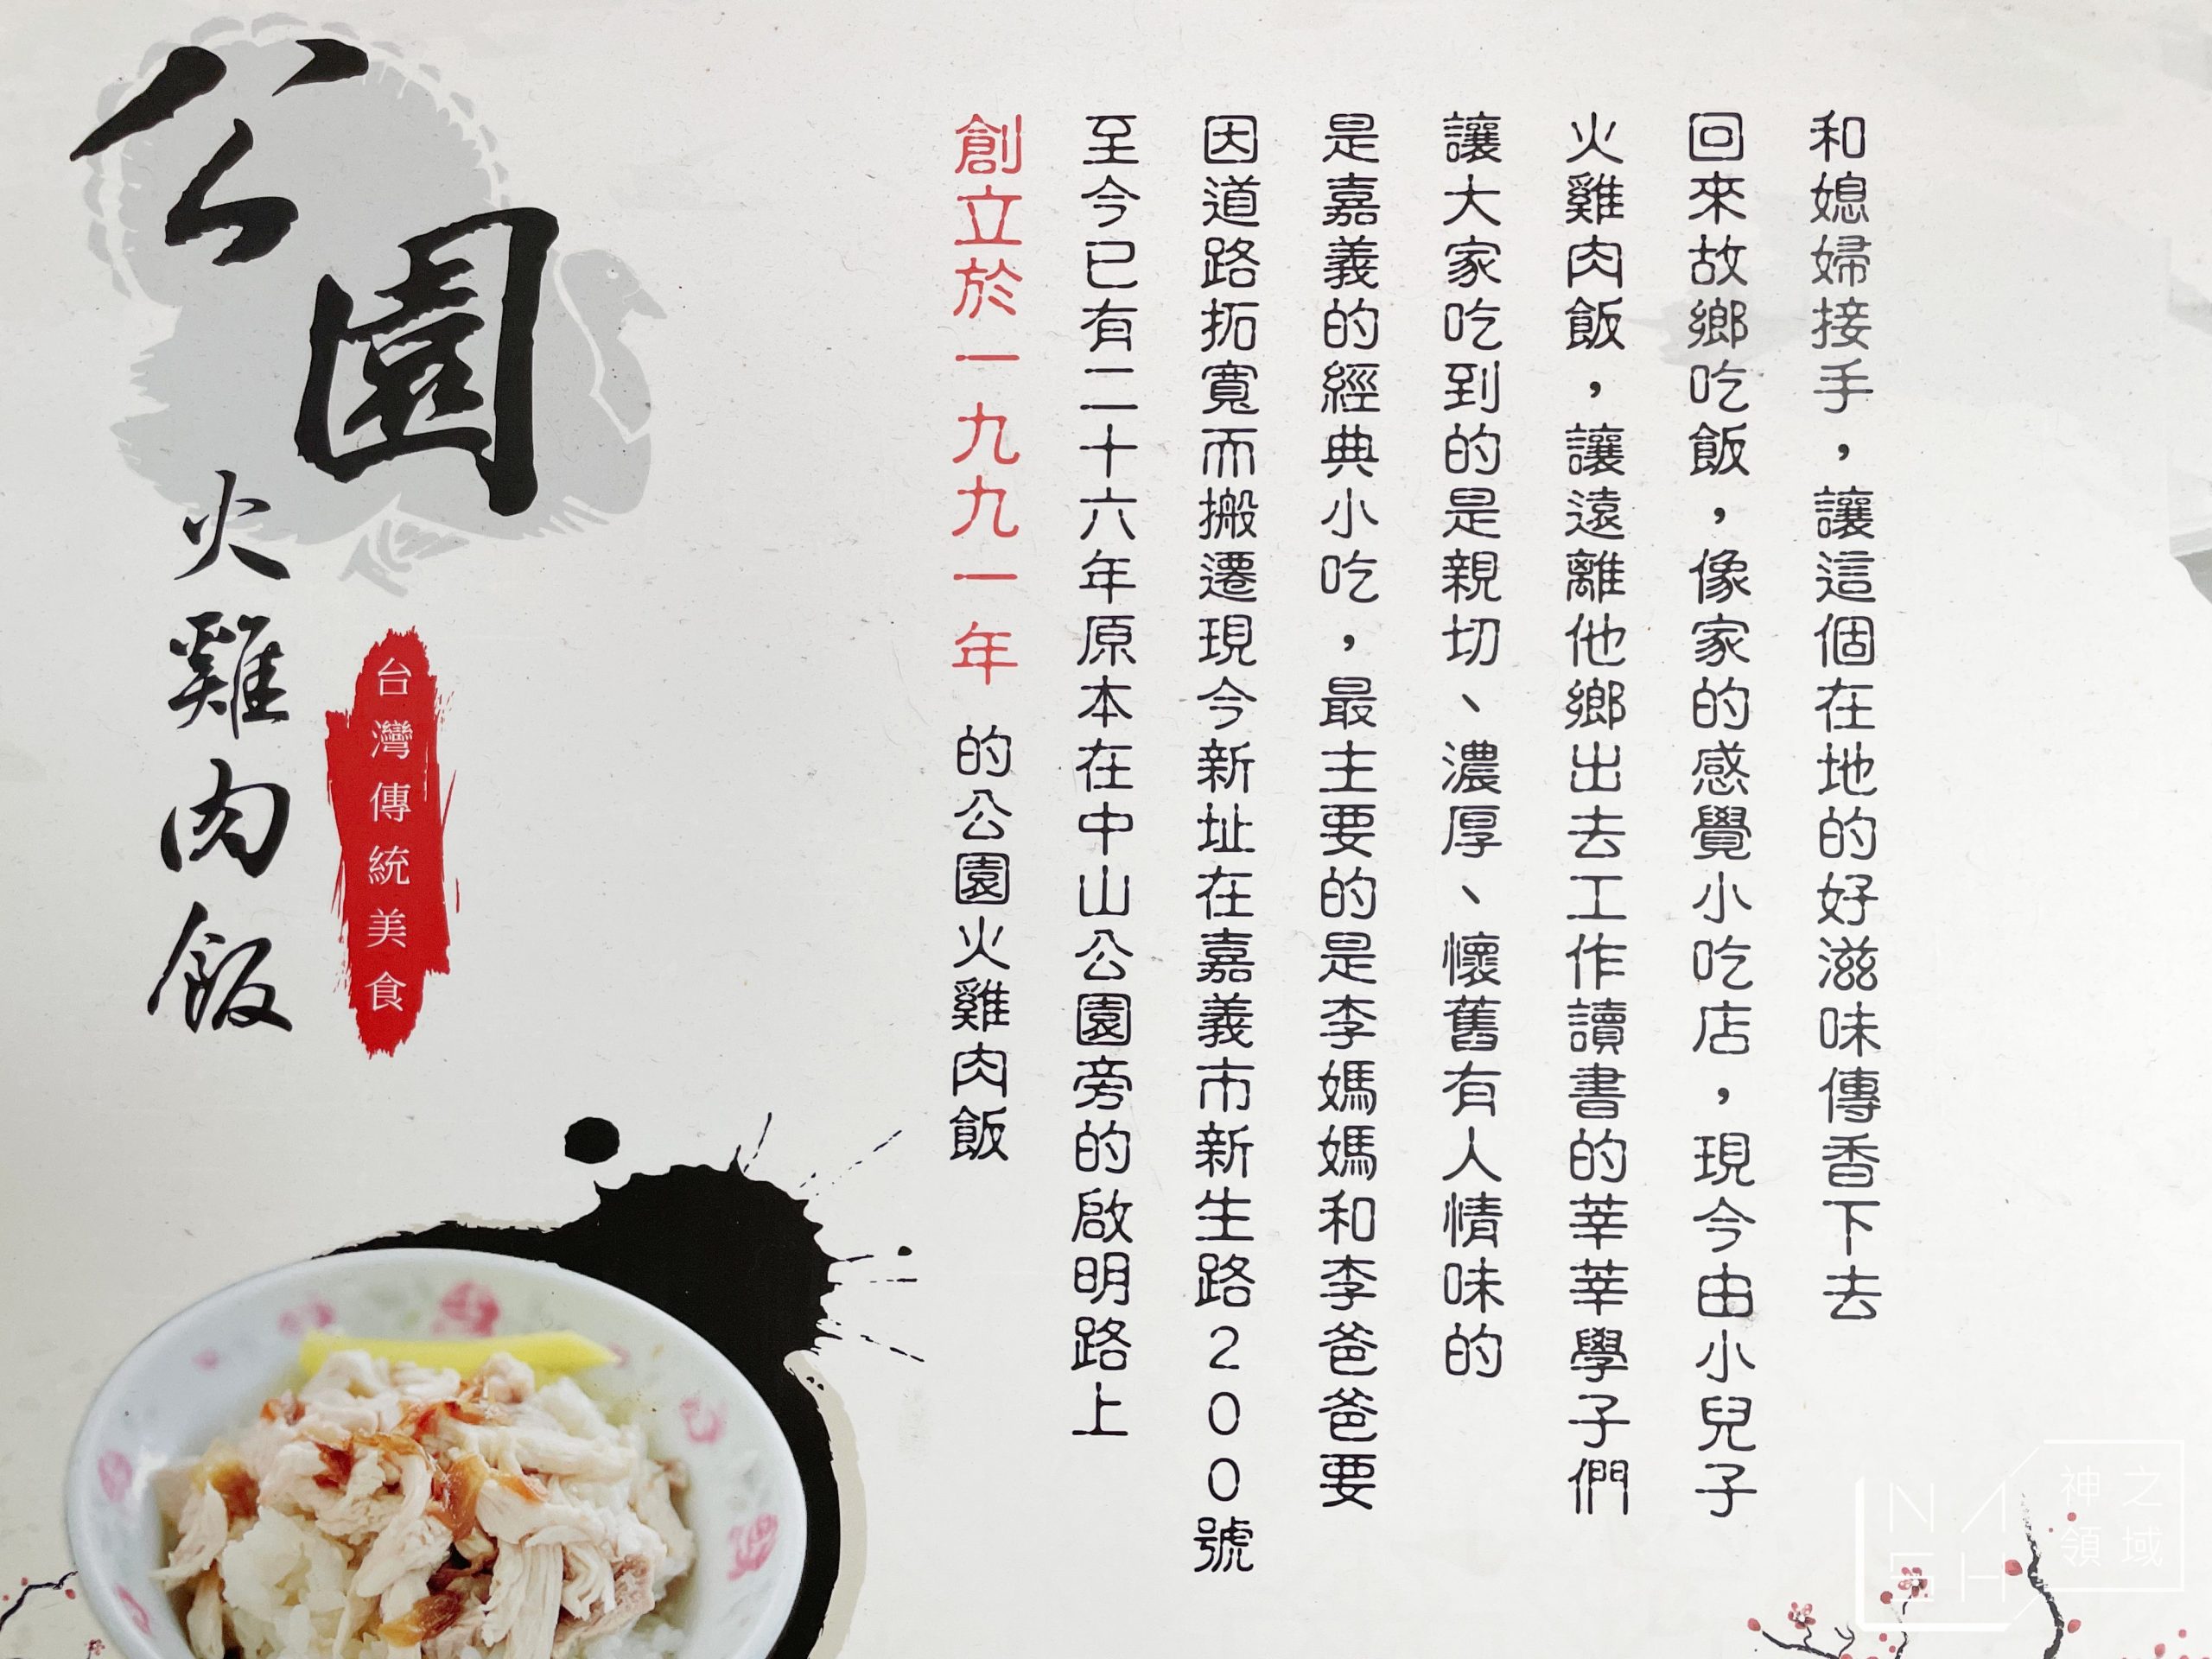 公園
火雞肉飯
台灣傳統美食
創立於一九九一年 的公園火雞肉飯
至今已有二十六年原本在中山公園旁的啟明路上
因道路拓寬而搬遷現今新址在嘉義市新生路200號
是嘉義的經典小吃，最主要的是李媽媽和李爸爸要
讓大家吃到的是親切、濃厚、懷舊有人情味的
火雞肉飯，讓遠離他鄉出去工作讀書的莘莘學子們
回來故鄉吃飯，像家的感覺小吃店，現今由小兒子
和媳婦接手，讓這個在地的好滋味傳香下去
NASH
神之領域